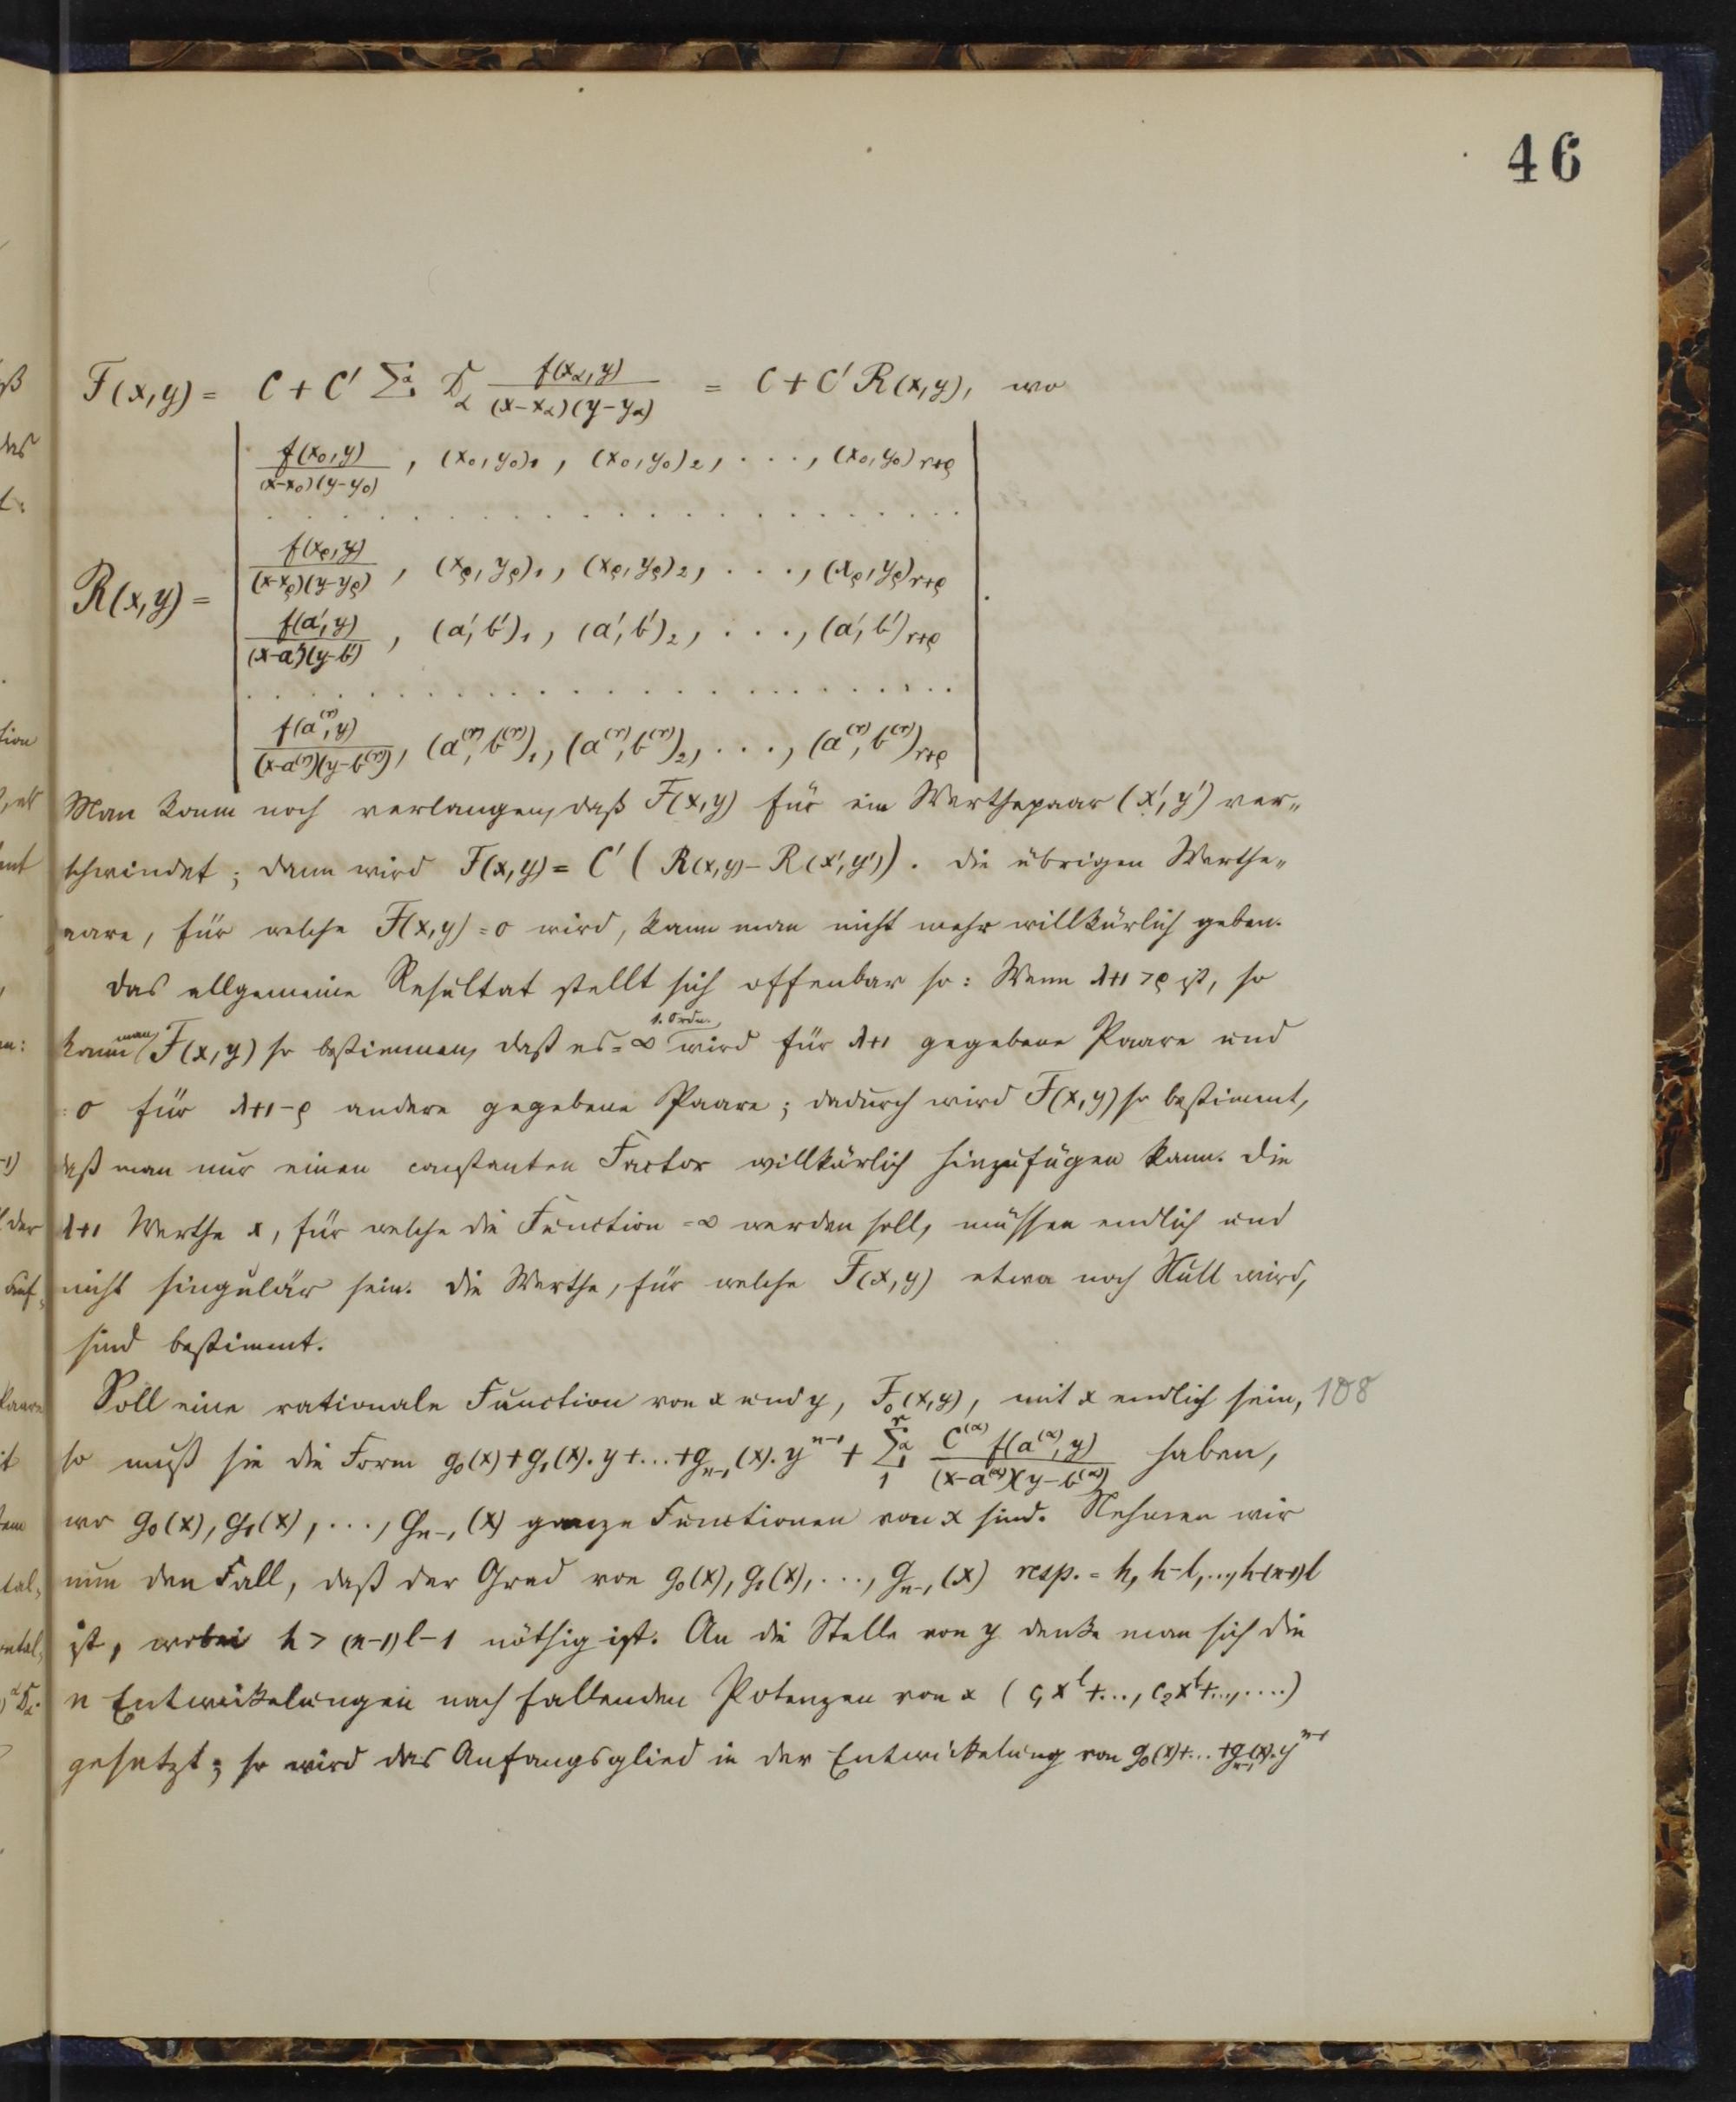 46
F(x,y) = C + C' Σ_α D_α f(x_α,y)/((x-x_α)(y-y_α)) = C + C' R(x,y), wo
f(x_0,y)/((x-x_0)(y-y_0)), (x_0,y_0)_1, (x_0,y_0)_2, ..., (x_0,y_0)_{r+ρ}
. . . . . . . . . . . . . . . . . . . .
R(x,y) = f(x_ρ,y)/((x-x_ρ)(y-y_ρ)), (x_ρ,y_ρ)_1, (x_ρ,y_ρ)_2, ..., (x_ρ,y_ρ)_{r+ρ} .
f(a',y)/((x-a')(y-b')), (a',b')_1, (a',b')_2, ..., (a',b')_{r+ρ}
. . . . . . . . . . . . . . . . . . . .
f(a^{(r)},y)/((x-a^{(r)})(y-b^{(r)})), (a^{(r)},b^{(r)})_1, (a^{(r)},b^{(r)})_2, ..., (a^{(r)},b^{(r)})_{r+ρ}
Man kann noch verlangen, daß F(x,y) für ein Werthepaar (x',y') ver-
schwindet; dann wird F(x,y) = C' (R(x,y) - R(x',y')). Die übrigen Werthe-
paare, für welche F(x,y) = 0 wird, kann man nicht mehr willkürlich geben.
Das allgemeine Resultat stellt sich offenbar so: Wenn λ+1 > ρ ist, so
kann man F(x,y) so bestimmen, daß es = ∞ 1. Ordn. wird für λ+1 gegebene Paare und
= 0 für λ+1-ρ andere gegebene Paare; dadurch wird F(x,y) so bestimmt,
daß man nur einen constanten Factor willkürlich hinzufügen kann. Die
λ+1 Werthe x, für welche die Function = ∞ werden soll, müssen endlich und
nicht singulär sein. Die Werthe, für welche F(x,y) etwa noch Null wird,
sind bestimmt.
Soll eine rationale Function von x und y, F_0(x,y), mit x endlich sein, 108
so muß sie die Form g_0(x) + g_1(x).y + ... + g_{n-1}(x).y^{n-1} + Σ_1^r C^{(α)} f(a^{(α)},y)/((x-a^{(α)})(y-b^{(α)})) haben,
wo g_0(x), g_1(x), ..., g_{n-1}(x) ganze Functionen von x sind. Nehmen wir
nun den Fall, daß der Grad von g_0(x), g_1(x), ..., g_{n-1}(x) resp. = h, h-l, ..., h-(n-1)l
ist, wobei h > (n-1)l-1 nöthig ist. An die Stelle von y denke man sich die
n Entwickelungen nach fallenden Potenzen von x (c_1x^l+..., c_2x^l+..., ....)
gesetzt; so wird das Anfangsglied in der Entwickelung von g_0(x)+...+g_{n-1}(x).y^{n-1}